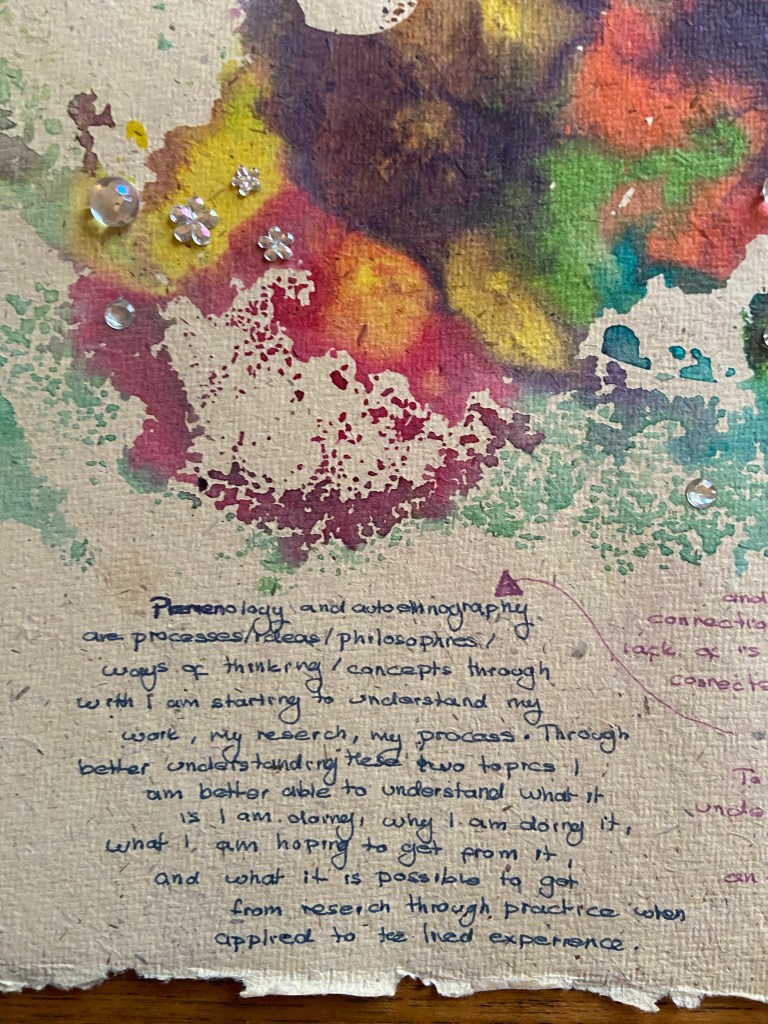 Pamenenology and autoethnography
are processes/ideas/philosophies/
ways of thinking/concepts through
with I am starting to understand my
work, my reserch, my process. Through
better understanding these two topics I
am better able to understand what it
is I am doing, why I am doing it,
what I am hoping to get from it,
and what it is possible to get
from reserch through practice when
applied to the lived experience.
and
connectio
lack of is
connecte
To
unde
can